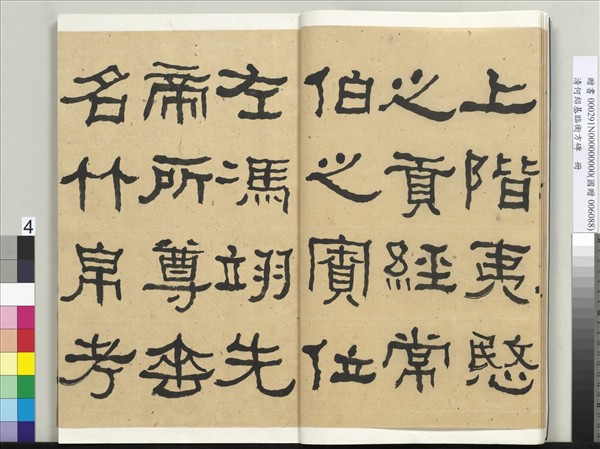 上階夷愍
之貢經常
伯之寮位
左馮翊先
帝所尊垂
名竹帛考
贈書 000291N000000000(國贈 006088)
清何紹基臨衡方碑 冊
4